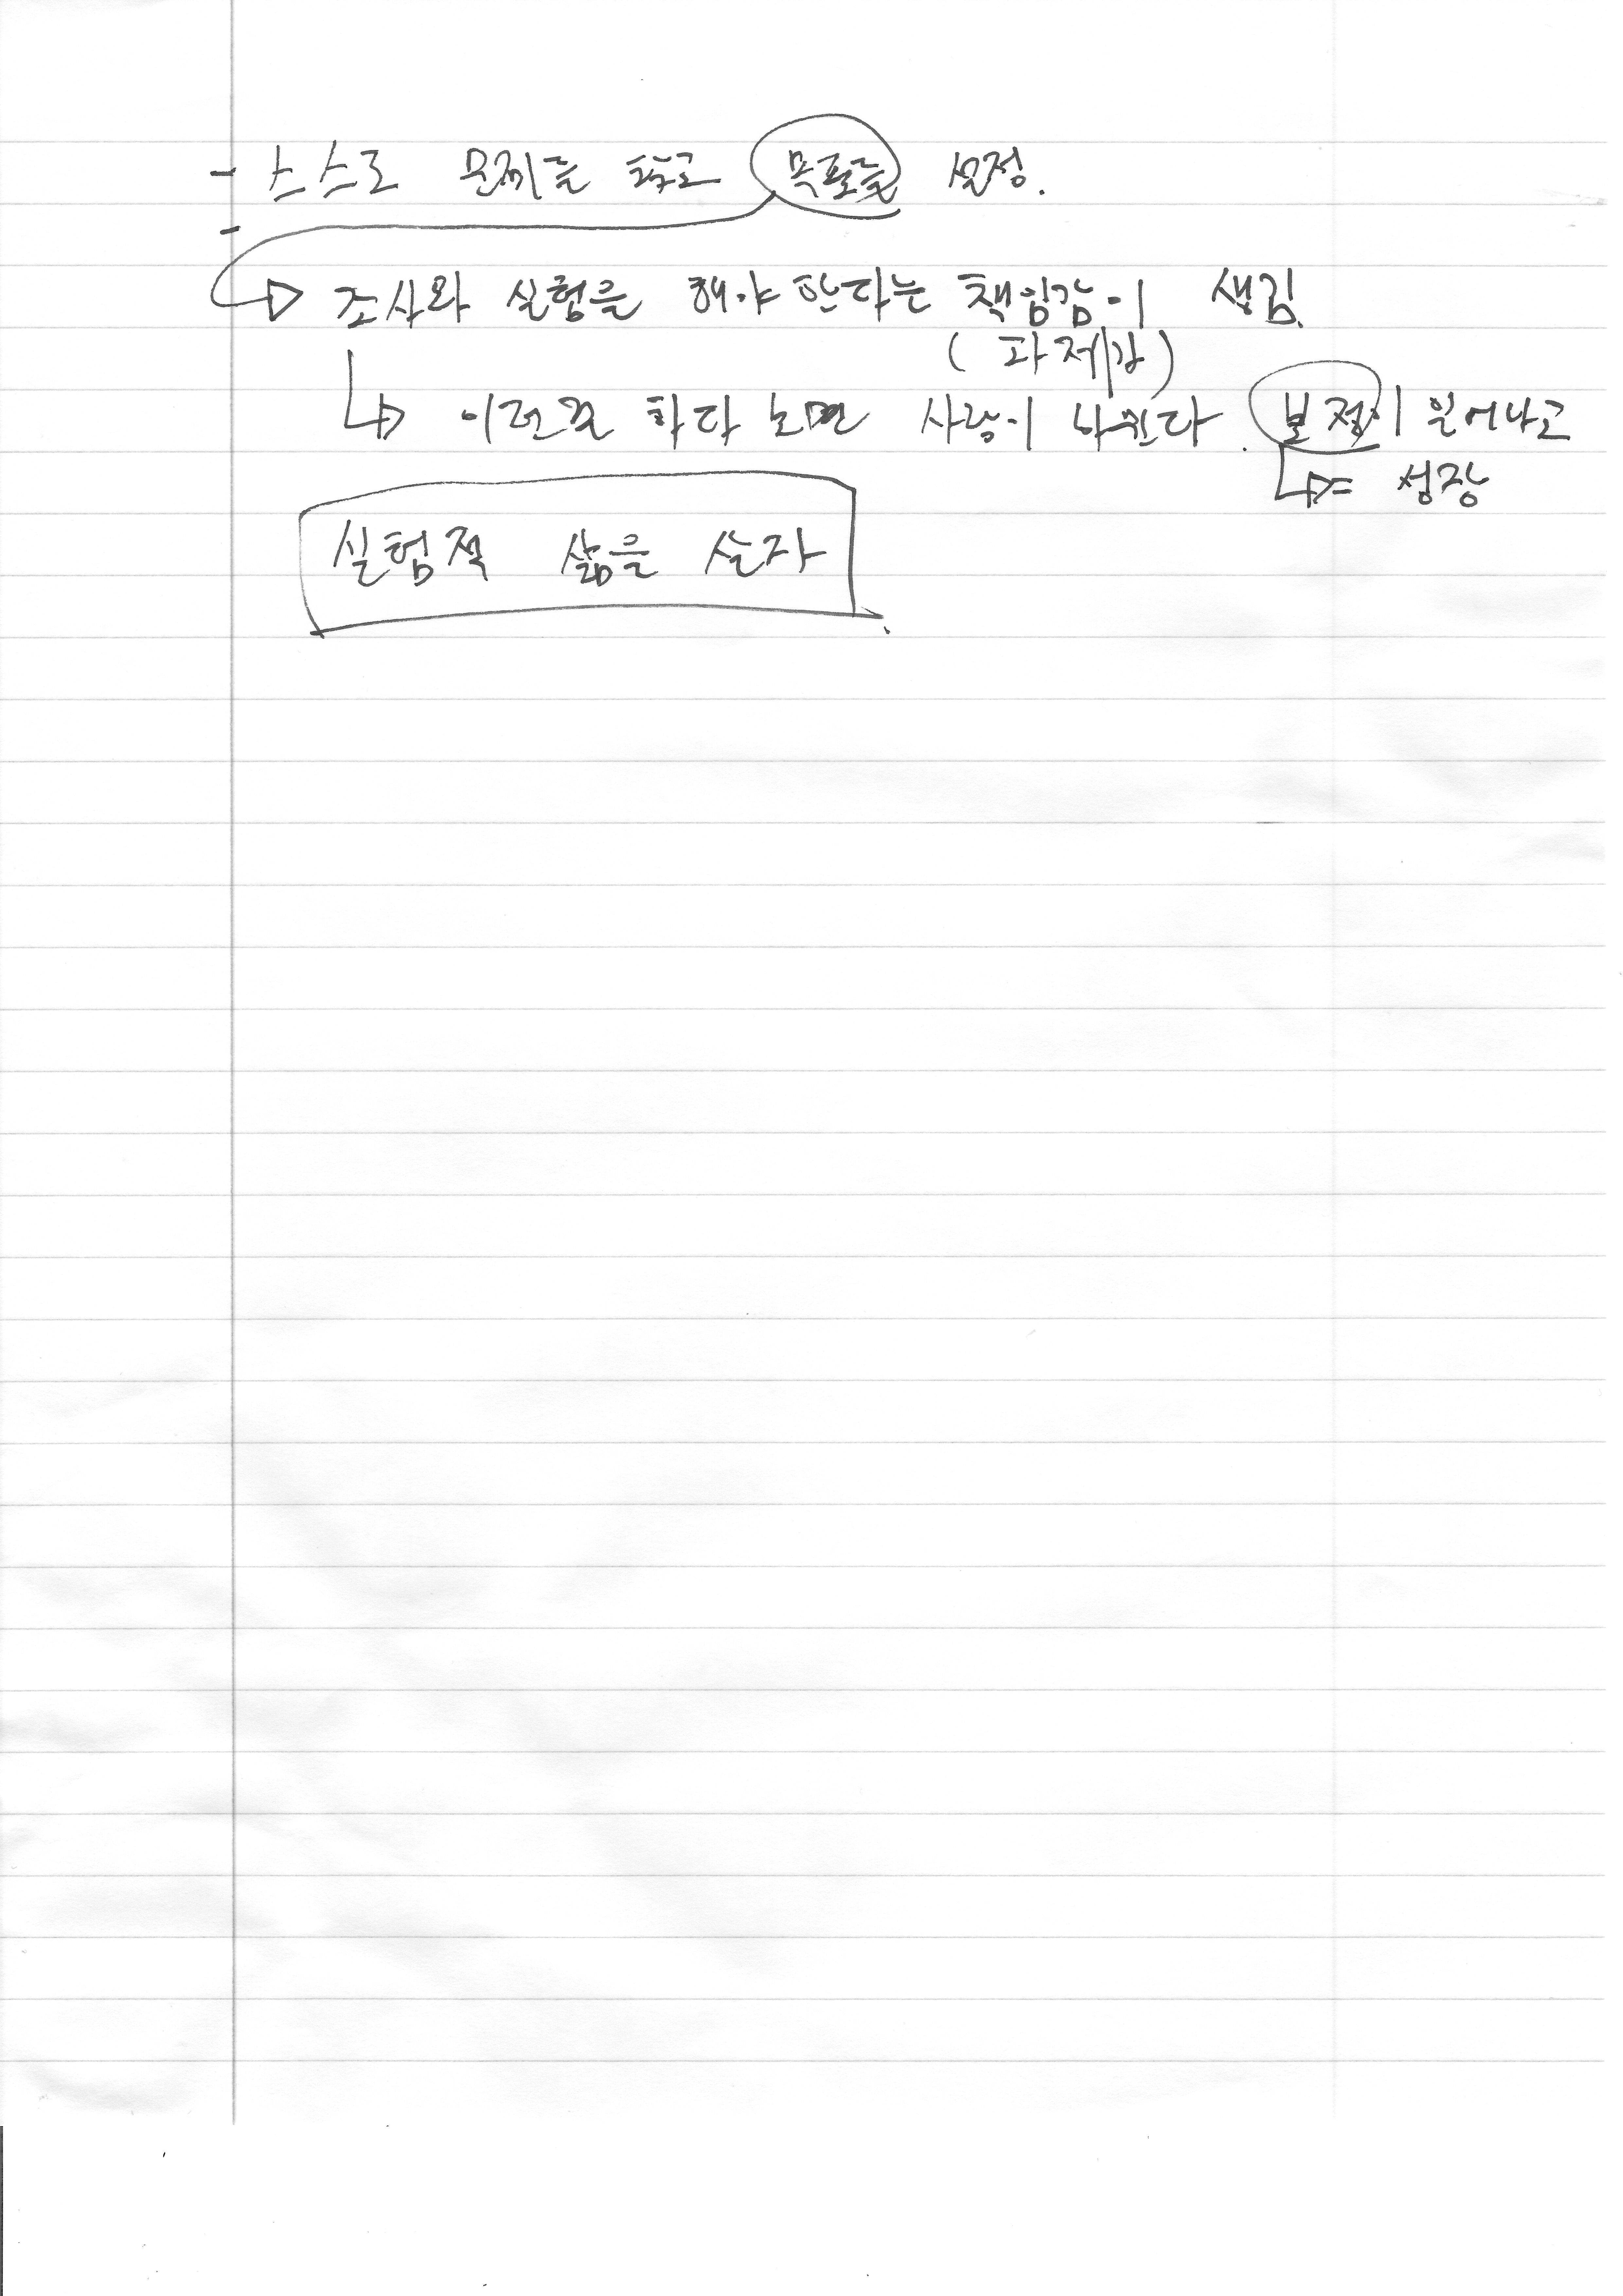 - 스스로 문제를 찾고 목표를 설정.
-
조사와 실험을 해야 한다는 책임감이 생김.
(과제감)
이런걸 하다 보면 사람이 바뀐다. 보정이 일어나고
= 성장
실험적 삶을 살자